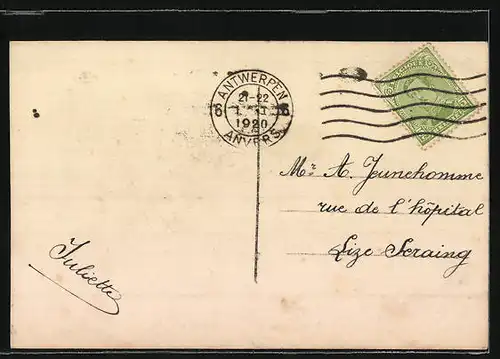 ANTWERPEN
6 21-22 6
1920
ANVERS
Mr A. Jeunehomme
rue de l'hôpital
Lize Seraing
Juliette